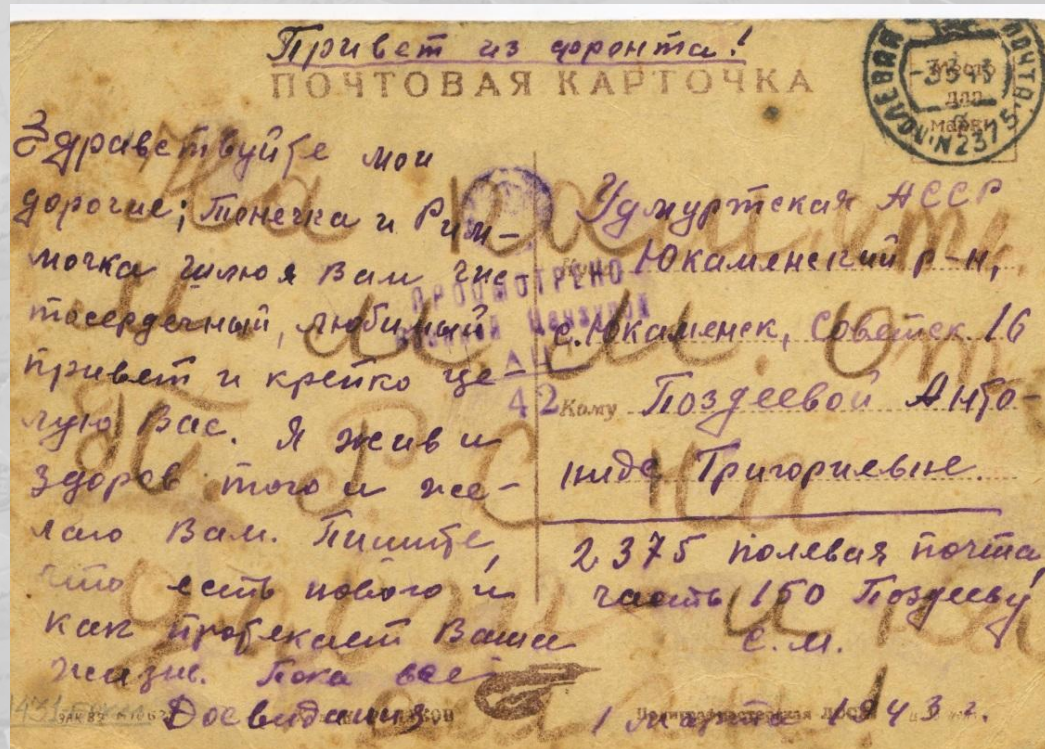 Привет из фронта!
ПОЧТОВАЯ КАРТОЧКА
ПОЛЕВАЯ ПОЧТА
-3 3 43
№2375
Место
для
марки
Здравствуйте мои
дорогие; Тонечка и Рим-
мочка шлю я Вам чис-
тосердечный, любимый
привет и крепко це-
лую Вас. Я жив и
здоров того и же-
лаю Вам. Пишите,
что есть нового и
как протекает Ваша
жизнь. Пока всё
Досвидания
1 Марта 1943 г.
ПРОСМОТРЕНО
Военной Цензурой
42
Куда Удмуртская АССР
Юкаменский р-н,
с. Юкаменск, Советск 16
Кому Поздеевой Анто-
ниде Григориевне.
2375 полевая почта,
часть 150 Поздееву
С.М.
На память
От